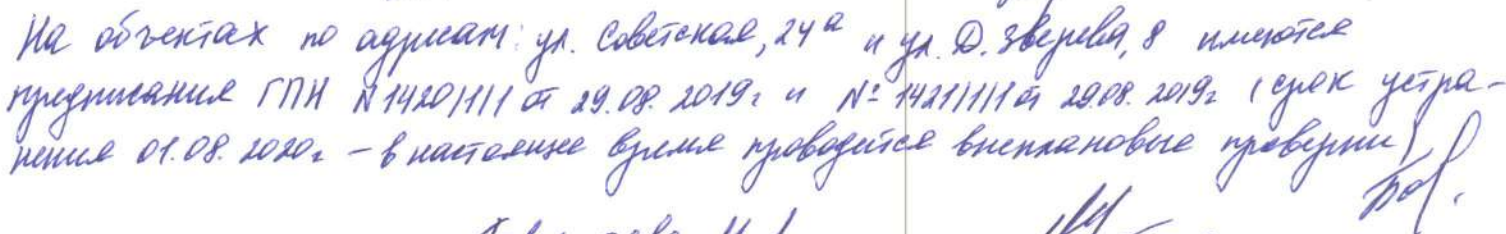 На объектах по адресам: ул. Советская, 24а и ул. Д. Зверева, 8 имеются
предписания ГПН №1420/1/1 от 29.08.2019г и № 1421/1/1 от 29.08.2019г (срок устра-
нения 01.08.2020г – в настоящее время проводятся внеплановые проверки)